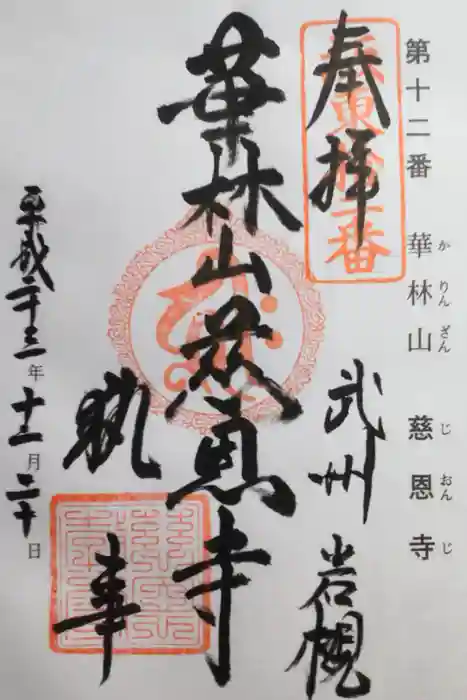 第十二番 華林山 慈恩寺
かりんざん じおんじ
奉拝
坂東拾二番
武州 岩槻
華林山慈恩寺
執事
平成二十三年十一月二十日